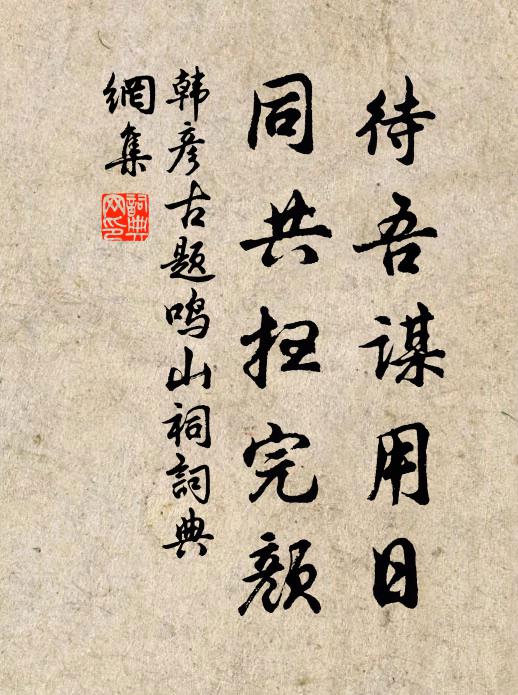 待吾謀用日
同共扫完颜
韩彦古题鸣山祠詞典
網集
詞典
网印